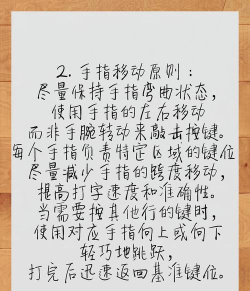 2. 手指移动原则：
尽量保持手指弯曲状态，
使用手指的左右移动
而非手腕转动来敲击按键。
每个手指负责特定区域的键位
尽量减少手指的跨度移动，
提高打字速度和准确性。
当需要按其他行的键时，
使用对应手指向上或向下
轻巧地跳跃，
打完后迅速返回基准键位。